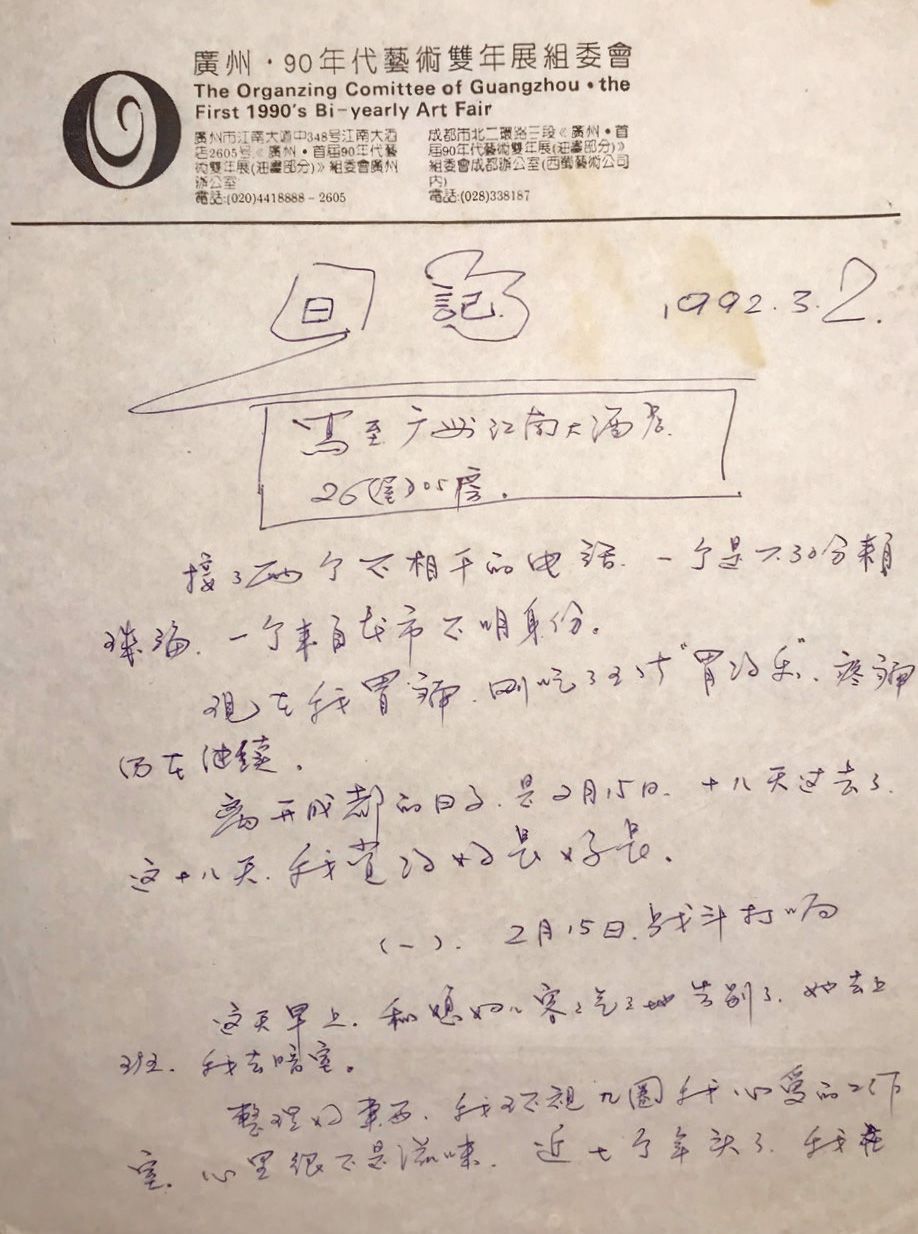 廣州·90年代藝術雙年展組委會
The Organzing Comittee of Guangzhou·the
First 1990's Bi-yearly Art Fair
廣州市江南大道中348号江南大酒
店2605号《廣州·首届90年代藝
術雙年展(油畫部分)》組委會廣州
辦公室
電話:(020)4418888-2605
成都市北二環路三段《廣州·首
届90年代藝術雙年展(油畫部分)》
組委會成都辦公室(西螢藝術公司
内)
電話:(028)338187
日記 1992.3.2.
寫至广州江南大酒店
26(层)05房.
接了两个不相干的电话.一个是 30分
珠海.一个来自本市不明身份。
现在我胃痛.刚吃了 "胃得乐".疼痛
仍在继续.
离开成都的日子.是2月15日.十八天过去了.
这十八天.我觉得好长好长.
(一). 2月15日.战斗打响
这天早上.和媳妇儿客客气气地告别了.她去上
班.我去暗室。
整理好东西.我环视九圈我心爱的工作
室.心里很不是滋味.近七个年头了.我在